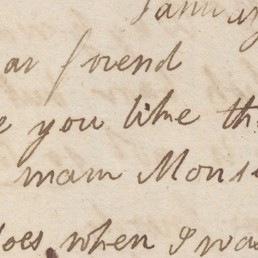 ar friend
e you like th
mam Mons
does when I was